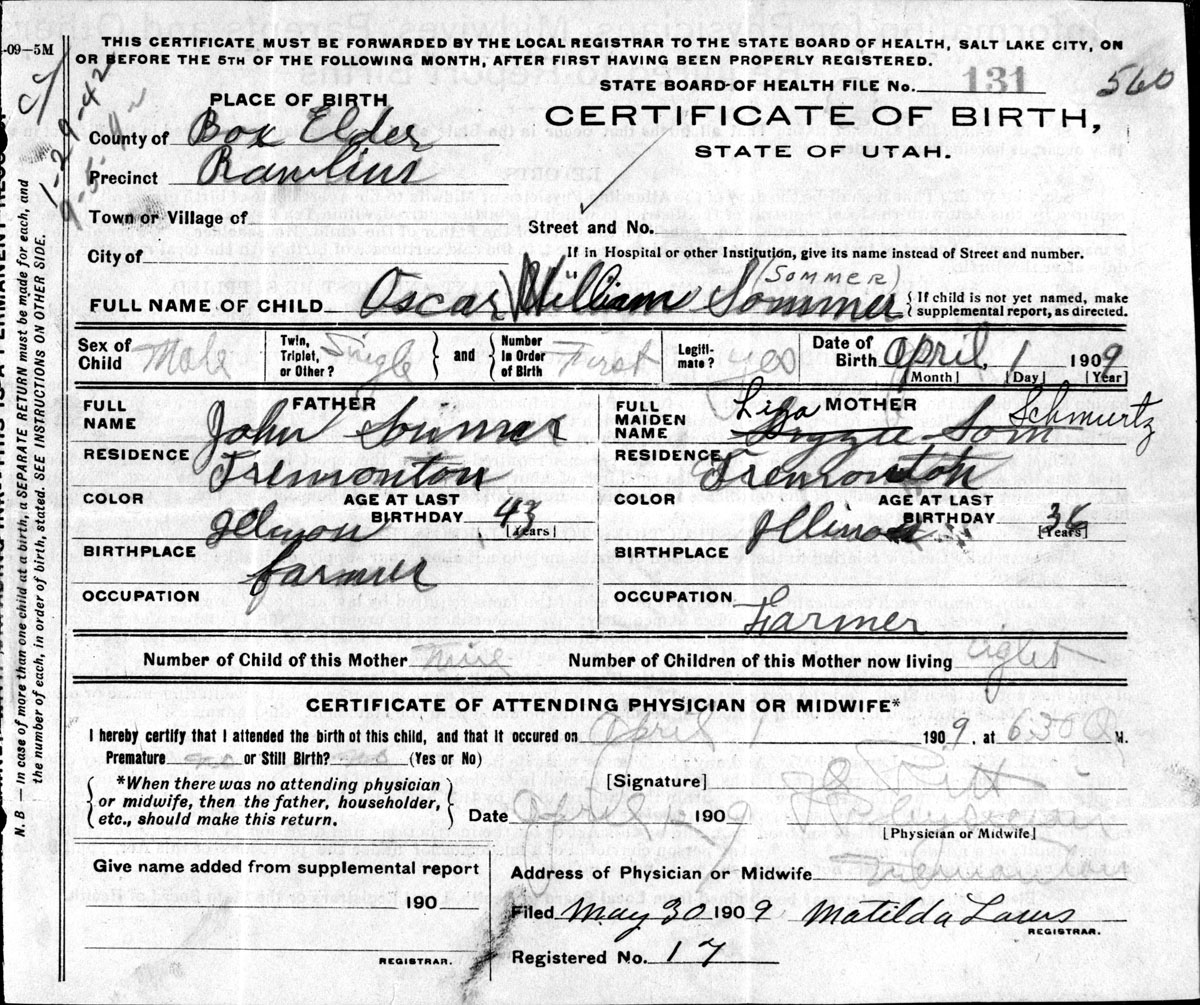 -09—5M
THIS CERTIFICATE MUST BE FORWARDED BY THE LOCAL REGISTRAR TO THE STATE BOARD OF HEALTH, SALT LAKE CITY, ON
OR BEFORE THE 5TH OF THE FOLLOWING MONTH, AFTER FIRST HAVING BEEN PROPERLY REGISTERED.
STATE BOARD OF HEALTH FILE No. 131 560
CERTIFICATE OF BIRTH,
STATE OF UTAH.
PLACE OF BIRTH
County of Box Elder
Precinct Rawlins
Town or Village of
Street and No.
City of
If in Hospital or other Institution, give its name instead of Street and number.
(SOMMER)
FULL NAME OF CHILD Oscar William Sommer
If child is not yet named, make supplemental report, as directed.
Sex of Child Male
Twin, Triplet, or Other? Single
and
Number in Order of Birth First
Legitimate? yes
Date of Birth April, 1 1909
[Month] [Day] [Year]
FATHER
FULL NAME John Sommer
RESIDENCE Tremonton
COLOR
AGE AT LAST BIRTHDAY 43 [Years]
BIRTHPLACE
farmer
OCCUPATION
MOTHER
FULL MAIDEN NAME Liza Schmurtz
Lizzie Som
RESIDENCE Tremonton
COLOR
AGE AT LAST BIRTHDAY 36 [Years]
Illinois
BIRTHPLACE
OCCUPATION
Farmer
Number of Child of this Mother Nine
Number of Children of this Mother now living eight
CERTIFICATE OF ATTENDING PHYSICIAN OR MIDWIFE*
I hereby certify that I attended the birth of this child, and that it occured on April 1 1909, at 630 a M.
Premature no or Still Birth? no (Yes or No)
*When there was no attending physician
or midwife, then the father, householder,
etc., should make this return.
[Signature]
Date April 1909 Physician
[Physician or Midwife]
Give name added from supplemental report
190
REGISTRAR.
Address of Physician or Midwife Tremonton
Filed May 30 1909 Matilda
REGISTRAR.
Registered No. 17
N. B.—In case of more than one child at a birth, a SEPARATE RETURN must be made for each, and
the number of each, in order of birth, stated. SEE INSTRUCTIONS ON OTHER SIDE.
THIS IS A PERMANENT
1-29-42